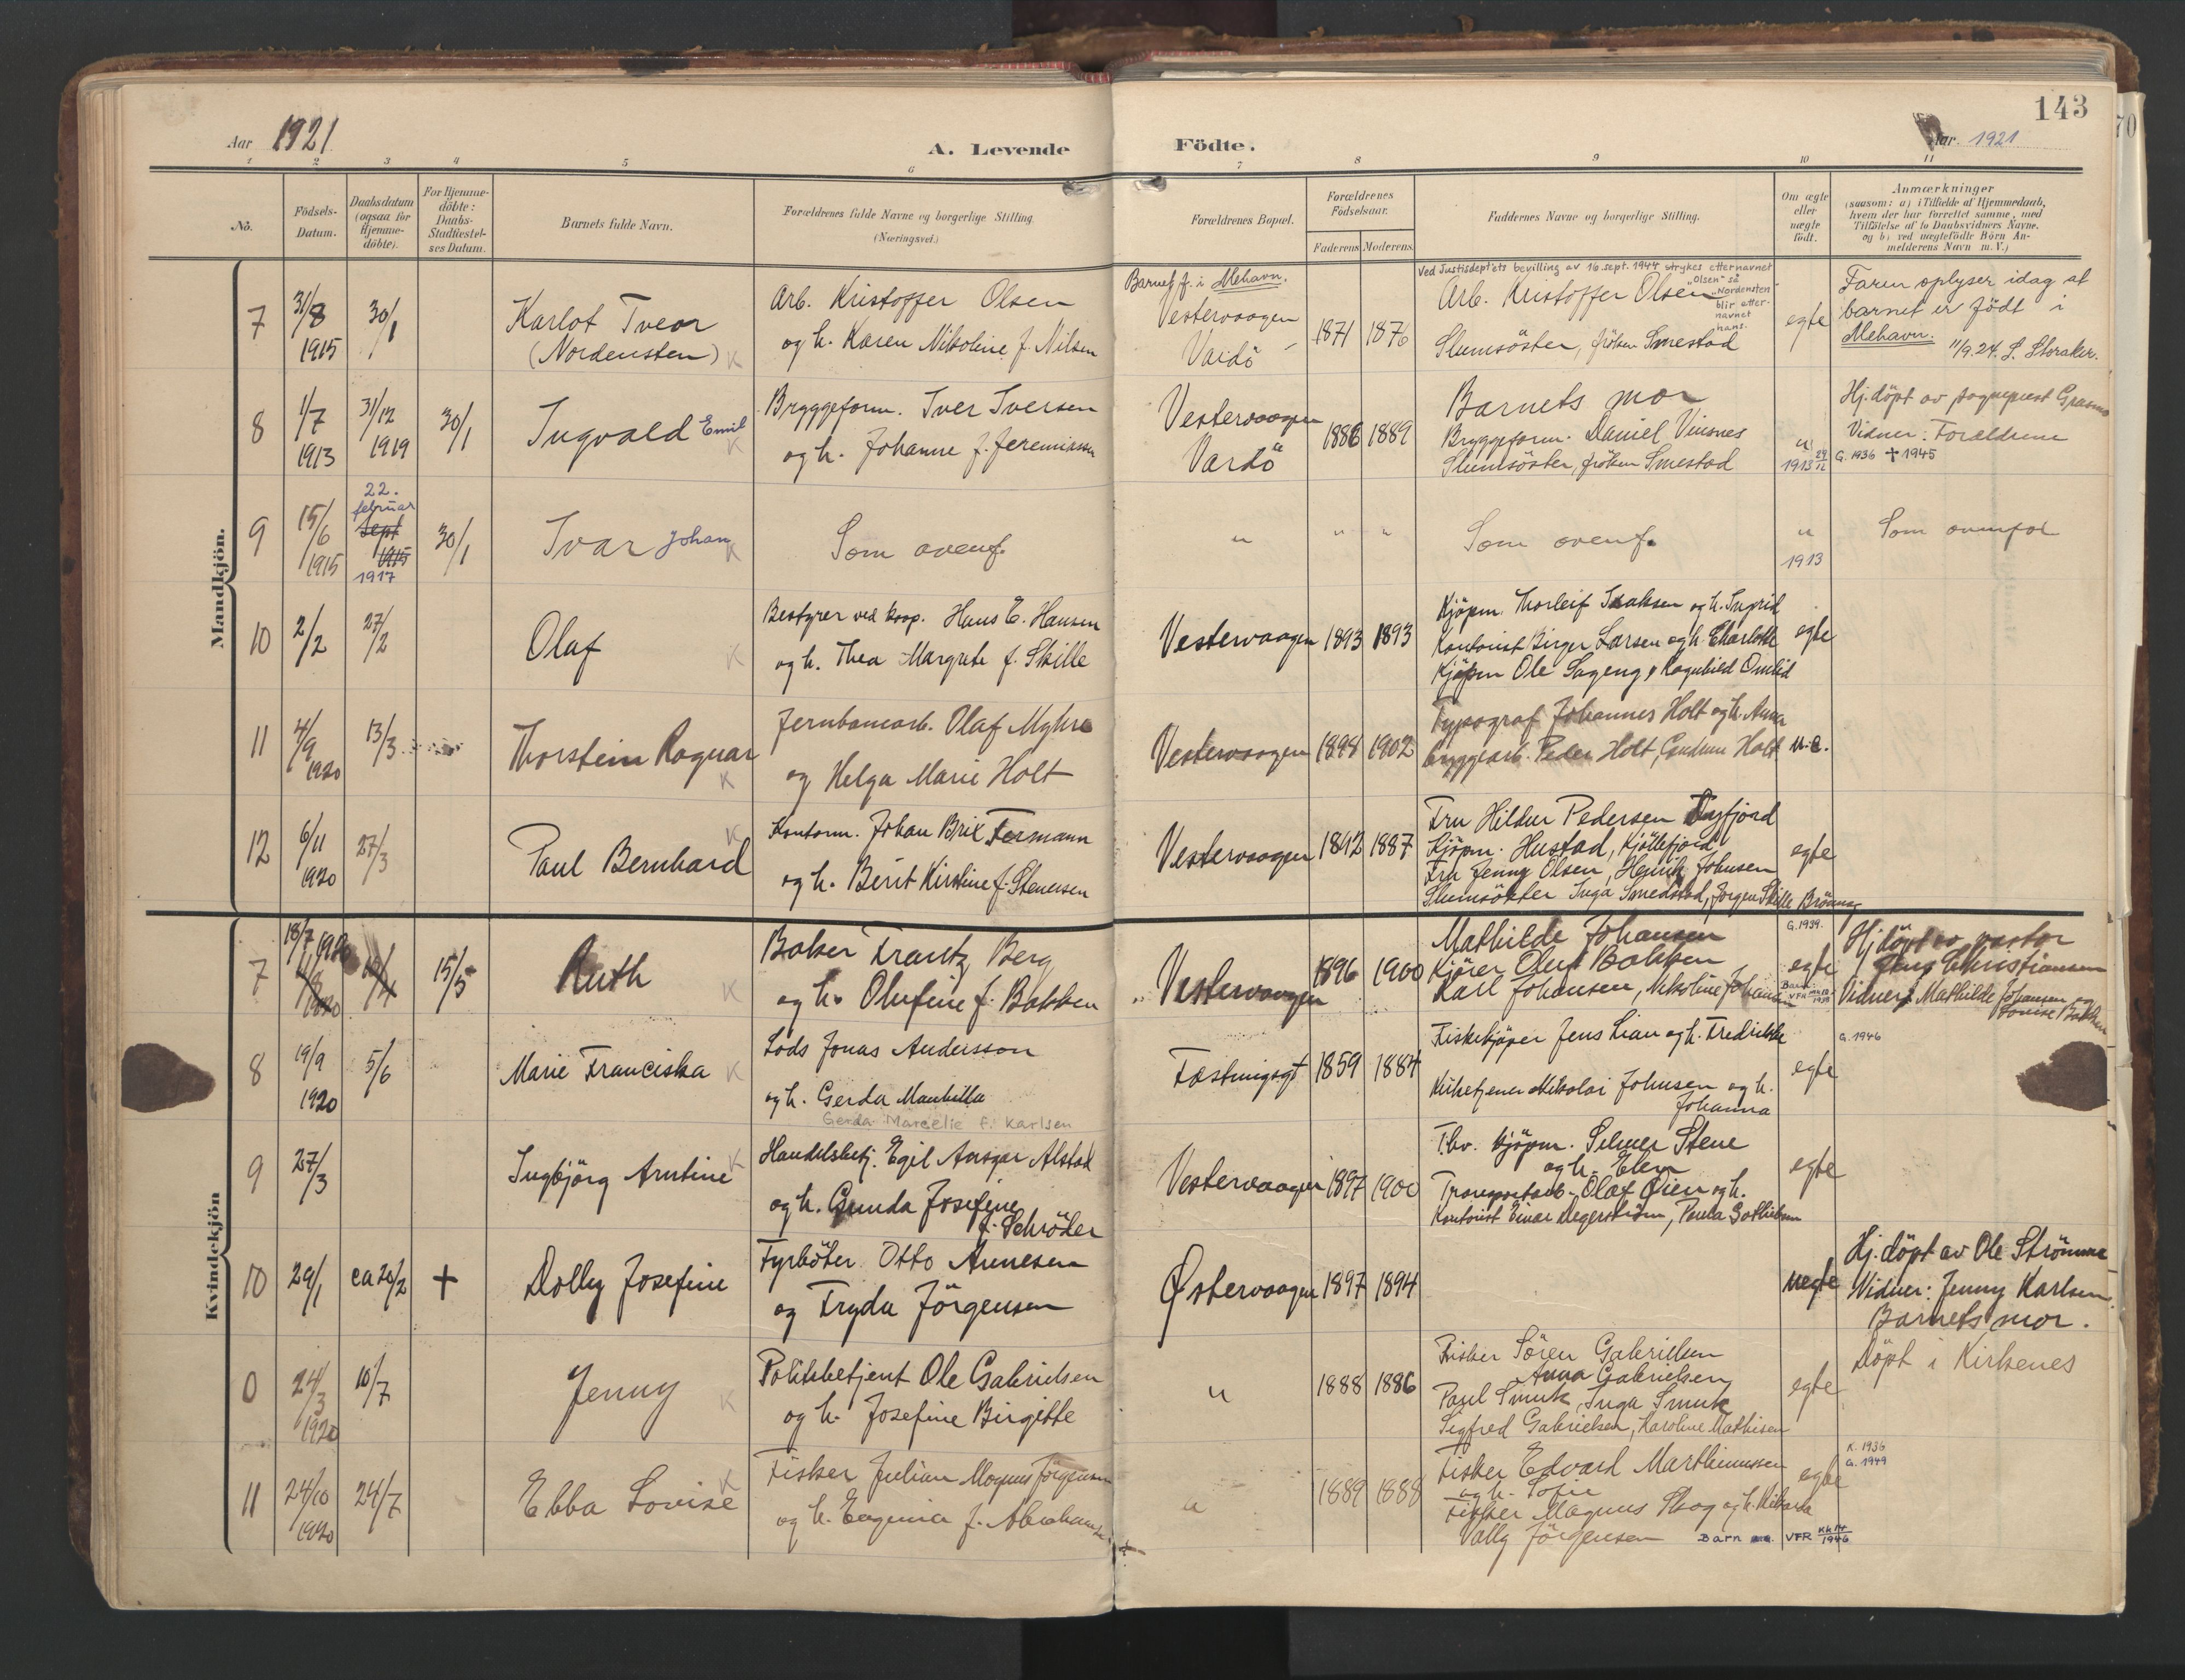 143
Aar 1921
A. Levende Födte.
Aar 1921
1 2 3 4 5 6 7 8 9 10 11
No.
Födsels-Datum.
Daabsdatum (ogsaa for Hjemme-döbte).
For Hjemme-döbte: Daabs-Stadfæstel-ses Datum.
Barnets fulde Navn.
Forældrenes fulde Navne og borgerlige Stilling.
(Næringsvei.)
Forældrenes Bopæl.
Forældrenes Födselsaar.
Faderens Moderens
Faddernes Navne og borgerlige Stilling.
Om ægte eller uægte födt.
Anmærkninger
(saasom: a) i Tilfælde af Hjemmedaab, hvem der har forrettet samme, med Tilföielse af to Daabsvidners Navne, og b) ved uægtefödte Börn An-melderens Navn m.V.)
Mandkjön.
7
31/8 1915
30/1
Karlot Tveor
(Nordensten) K
Arb. Kristoffer Olsen
og h. Karen Nikoline f. Nilsen
Barnet f. i Mehavn.
Vestervaagen
Vardö
1871 1876
Ved Justisdept'ets bevilling av 16. sept. 1944 strykes etternavnet "Olsen" så "Nordensten" blir etter-navnet hans.
Arb. Kristoffer Olsen
Slumsöster, fröken Smestad
egte
Faren oplyser idag at
barnet er födt i
Mehavn. 11/9.24. S. Storaker.
8
1/7 1913
31/12 1919
30/1
Ingvald Emil K
Bryggeform. Iver Iversen
og h. Johanne f. Jeremiassen
Vestervaagen
Vardö
1886 1889
Barnets mor
Bryggeform. Daniel Vinsnes
Slumsöster, fröken Smestad
" 1913
Hj.döpt av sogneprest
Vidner: Forældrene
G. 1936 + 1945
9
15/6 1915
22. februar sept 1915 1917
30/1
Ivar Johan K
Som ovenf.
" " "
Som ovenf.
" 1913
Som ovenfor
10
2/2
27/2
Olaf K
Bestyrer ved koop. Hans E. Hansen
og h. Thea Margrete f. Skille
Vestervaagen 1893 1893
Kjöpm. Thorleif Isaksen og h. Ingrid
Kontorist Birger Larsen og h. Charlotte
Kjöpm Ole Sageng, Ragnhild Omlid
egte
11
4/9 1920
13/3
Thorstein Ragnar K
Jernbanearb. Olaf Myhre
og Helga Marie Holt
Vestervaagen 1898 1902
Typograf Johannes Holt og h. Anna
Bryggearb. Peder Holt, Gudrun Holt
u.e.
12
6/11 1920
27/3
Paul Bernhard K
Kontorm. Johan Brix Fermann
og h. Berit Kirstine f. Stenersen
Vestervaagen 1842 1887
Fru Hildur Pedersen Dyfjord
Kjöpm. Hustad, Kjöllefjord
Fru Jenny Olsen, Henrik Johnsen
Slumsöster Inga Smedstad, Jörgen Skille
egte
Kvindekjön
7
18/7 1920
15/5
Ruth K
Baker Frantz Berg
og h. Olufine f. Bakken
Vestervaagen
1896 1900
Mathilde Johansen
Kjörer Oluf Bakken
Karl Johansen, Nikoline Johansen
G. 1939.
egte
Hj.döpt av pastor
Jens Christiansen
Vidner: Mathilde Johansen og
Lovise Bakken
8
19/9 1920
5/6
Marie Franciska K
Lods Jonas Andersson
og h. Gerda Manhilla
Gerda Marcelie f. Karlsen
Festningsgt 1859 1884
Fiskekjöper Jens Lian og h. Fredrikke
Kirketjener Nikolai Johnsen og h.
Johanna
egte
G. 1946
9
27/3
Ingbjörg Arntine K
Handelsbetj. Egil Ansgar Alstad
og h. Gunda Josefine
f. Schröder
Vestervaagen 1897 1900
Thv. Kjöpm. Selmer Stene
og h. Elen
Transportarb. Olaf Öien og h.
Kontorist Einar Negerström, Paula Gothielsen
egte
10
29/1
ca 20/2
+
Dolly Josefine
Fyrböter Otto Arnesen
og Fryda Jörgensen
Østervaagen 1897 1894
uegte
Hj.döpt av Ole Strömme
Vidner: Jenny Karlsen
Barnets mor.
0
24/3 1920
10/7
Jenny K
Politibetjent Ole Gabrielsen
og h. Josefine Birgitte
"
1888 1886
Fisker Sören Gabrielsen
Anna Gabrielsen
Paul Smuk, Inga Smuk
Sigfred Gabrielsen, Karoline Mathisen
egte
Döpt i Kirkenes
11
24/10 1920
24/7
Ebba Lovise K
Fisker Julian Magnus Jörgensen
og h. Eugenia f. Abrahamsen
"
1889 1888
Fisker Edvard Marthinussen
og h. Sofie
Fisker Magnus Skog og h.
Vally Jörgensen
egte
K. 1936
G. 1949
Barn VFR 1946